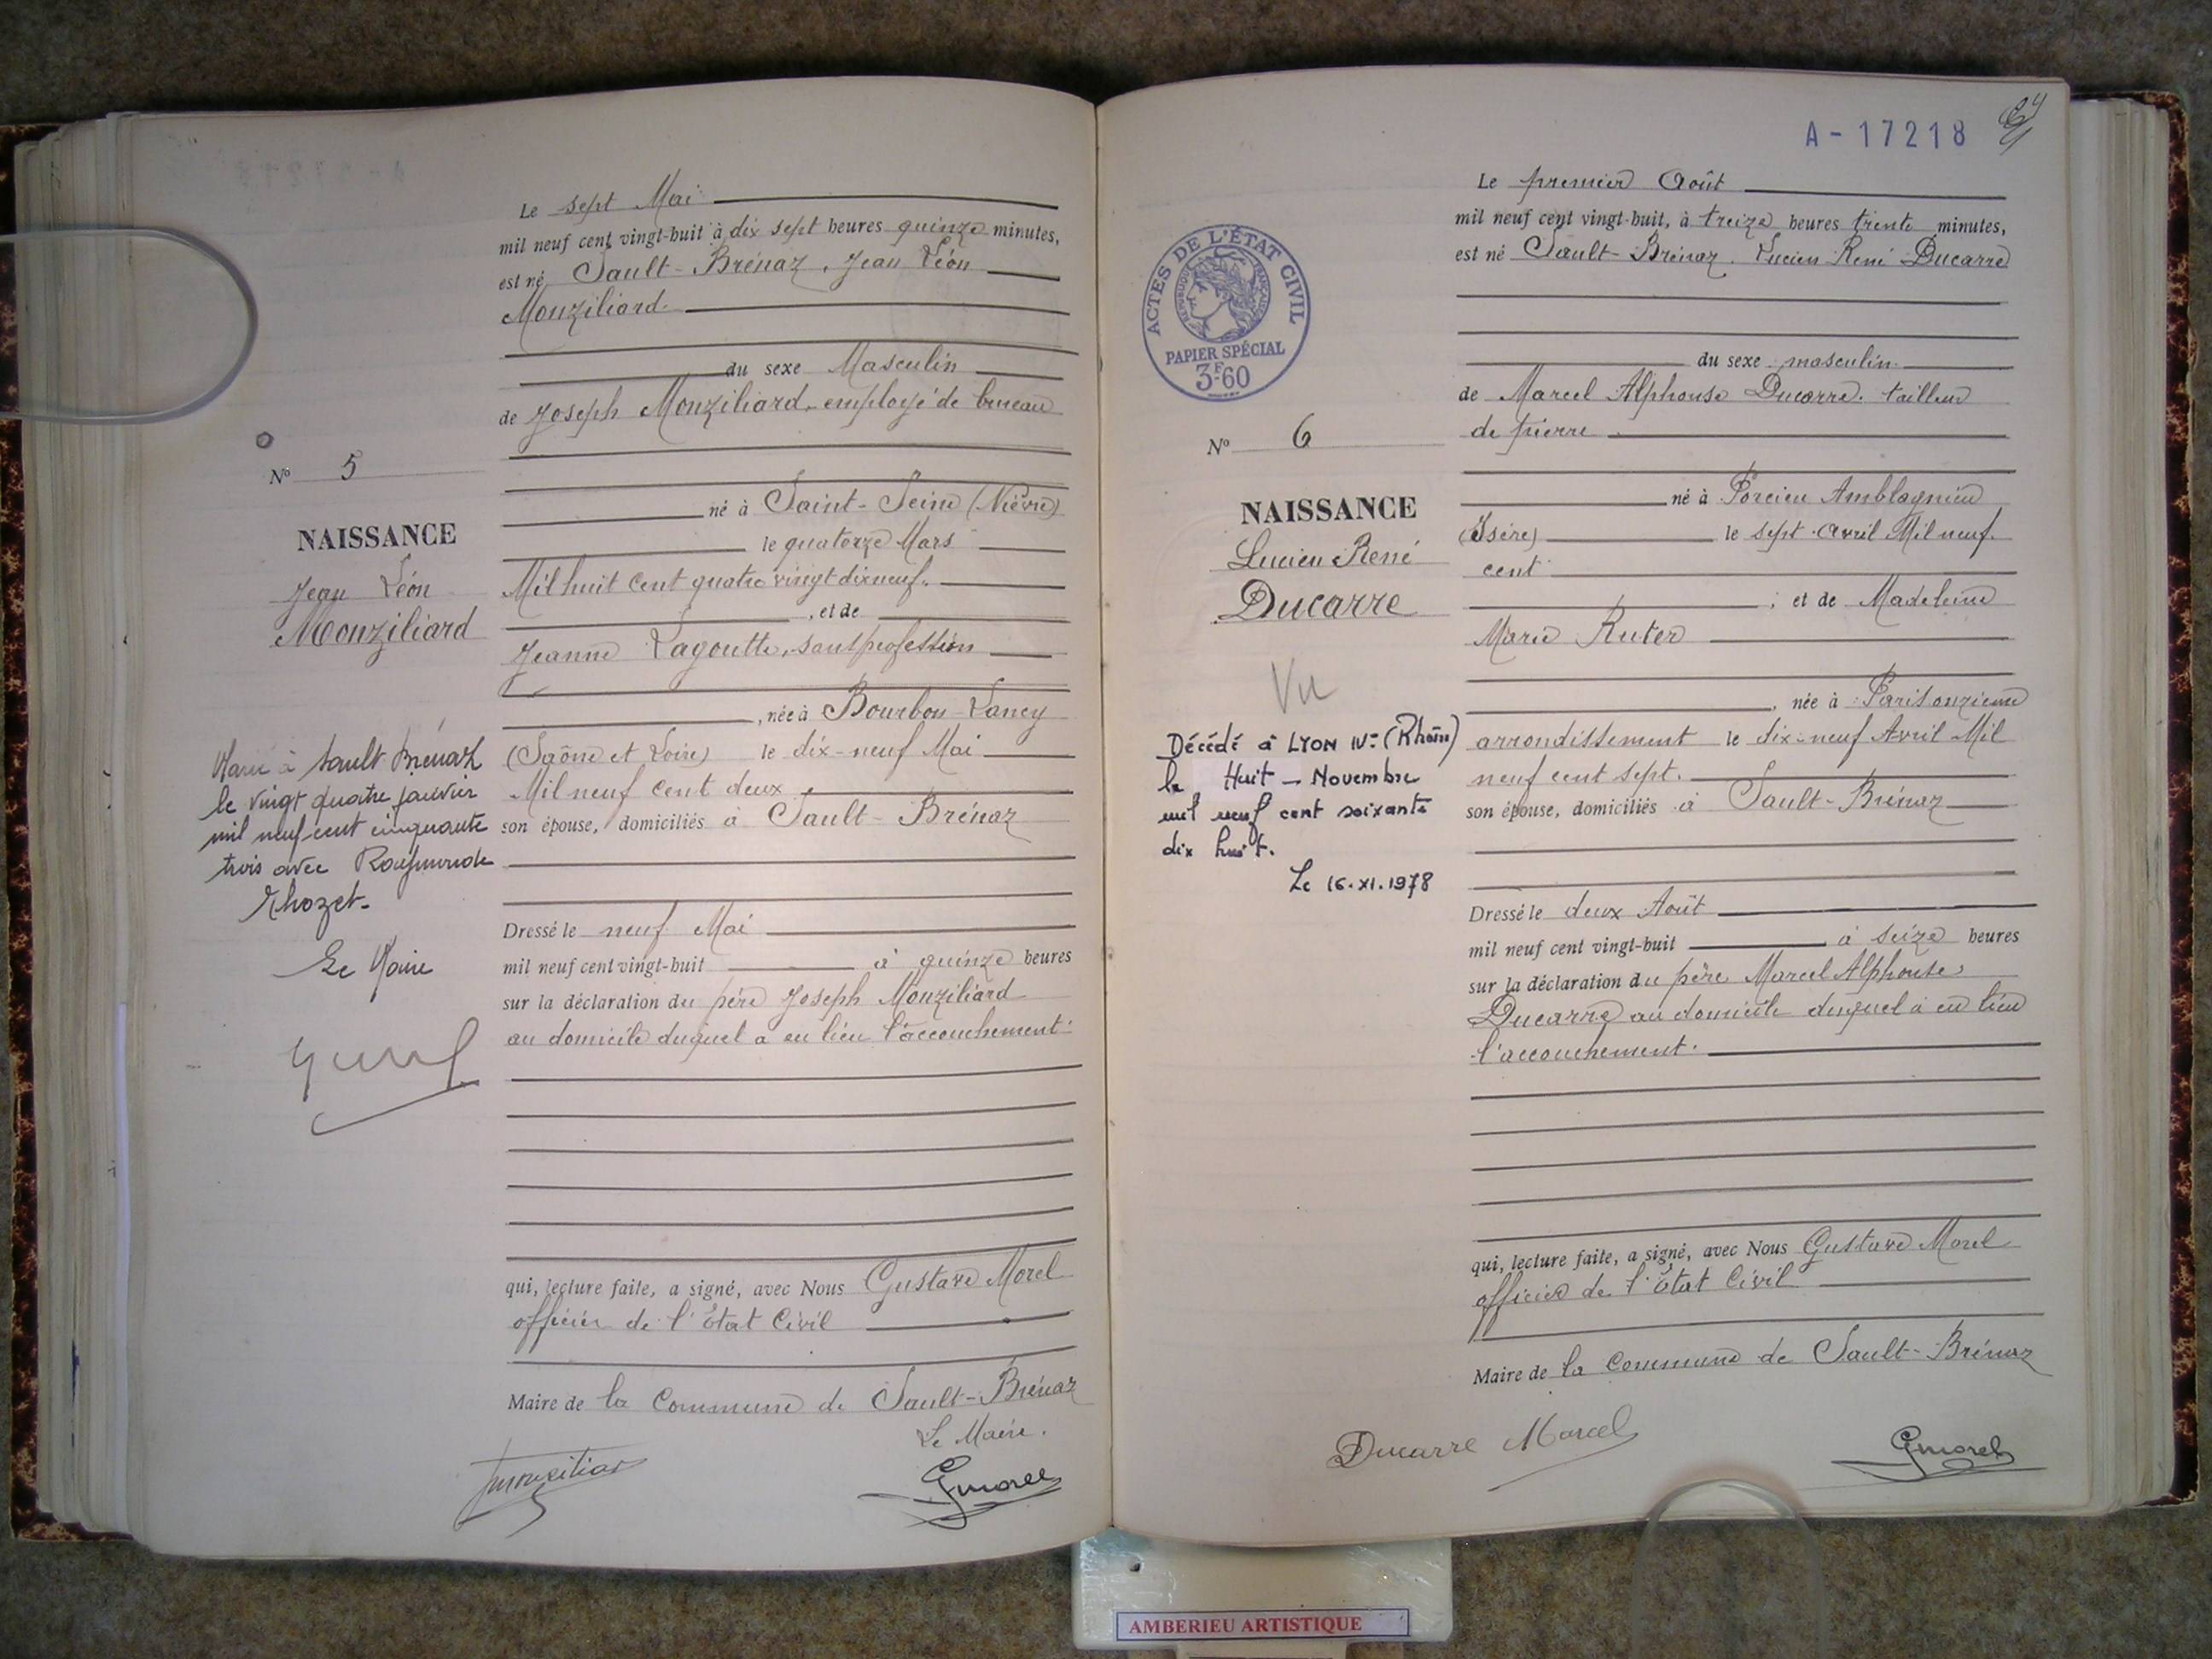 Le sept Mai
mil neuf cent vingt-huit à dix sept heures quinze minutes,
est né Sault-Brénaz, Jean Léon
Monziliard
du sexe Masculin
de Joseph Monziliard, employé de bureau
N° 5
NAISSANCE
Jean Léon
Monziliard
né à Saint-Seine (Nièvre)
le quatorze Mars
Mil huit cent quatre vingt dix neuf.
, et de
Jeanne Lagoutte, sans profession
, née à Bourbon-Lancy
(Saône et Loire) le dix-neuf Mai
Mil neuf cent deux
son épouse, domiciliés à Sault-Brénaz
Marié à Sault Brénaz
le vingt quatre janvier
mil neuf cent cinquante
trois avec Raymonde
Rhozet.
Le Maire
Dressé le neuf Mai
mil neuf cent vingt-huit à quinze heures
sur la déclaration du père Joseph Monziliard
au domicile duquel a eu lieu l'accouchement.
qui, lecture faite, a signé, avec Nous Gustave Morel
officier de l'Etat Civil
Maire de la Commune de Sault-Brénaz
Le Maire.
GMorel
A-17218
Le premier Août
mil neuf cent vingt-huit, à treize heures trente minutes,
est né Sault-Brénaz. Lucien René Ducarre
ACTES DE L'ÉTAT CIVIL
RÉPUBLIQUE FRANÇAISE
PAPIER SPÉCIAL
3F.60
du sexe masculin
de Marcel Alphonse Ducarre. tailleur
de pierre
N° 6
NAISSANCE
Lucien René
Ducarre
Vu
né à Porcieu Amblagnieu
(Isère) le sept Avril Mil neuf
cent
; et de Madeleine
Marie Ruter
, née à Paris onzième
arrondissement le dix-neuf Avril Mil
neuf cent sept.
son épouse, domiciliés à Sault-Brénaz
Décédé à LYON IVe (Rhône)
le Huit - Novembre
mil neuf cent soixante
dix huit.
Le 16.XI.1978
Dressé le deux Août
mil neuf cent vingt-huit à seize heures
sur la déclaration du père Marcel Alphonse
Ducarre au domicile duquel a eu lieu
l'accouchement.
qui, lecture faite, a signé, avec Nous Gustave Morel
officier de l'Etat Civil
Maire de la Commune de Sault-Brénaz
Ducarre Marcel
GMorel
AMBERIEU ARTISTIQUE